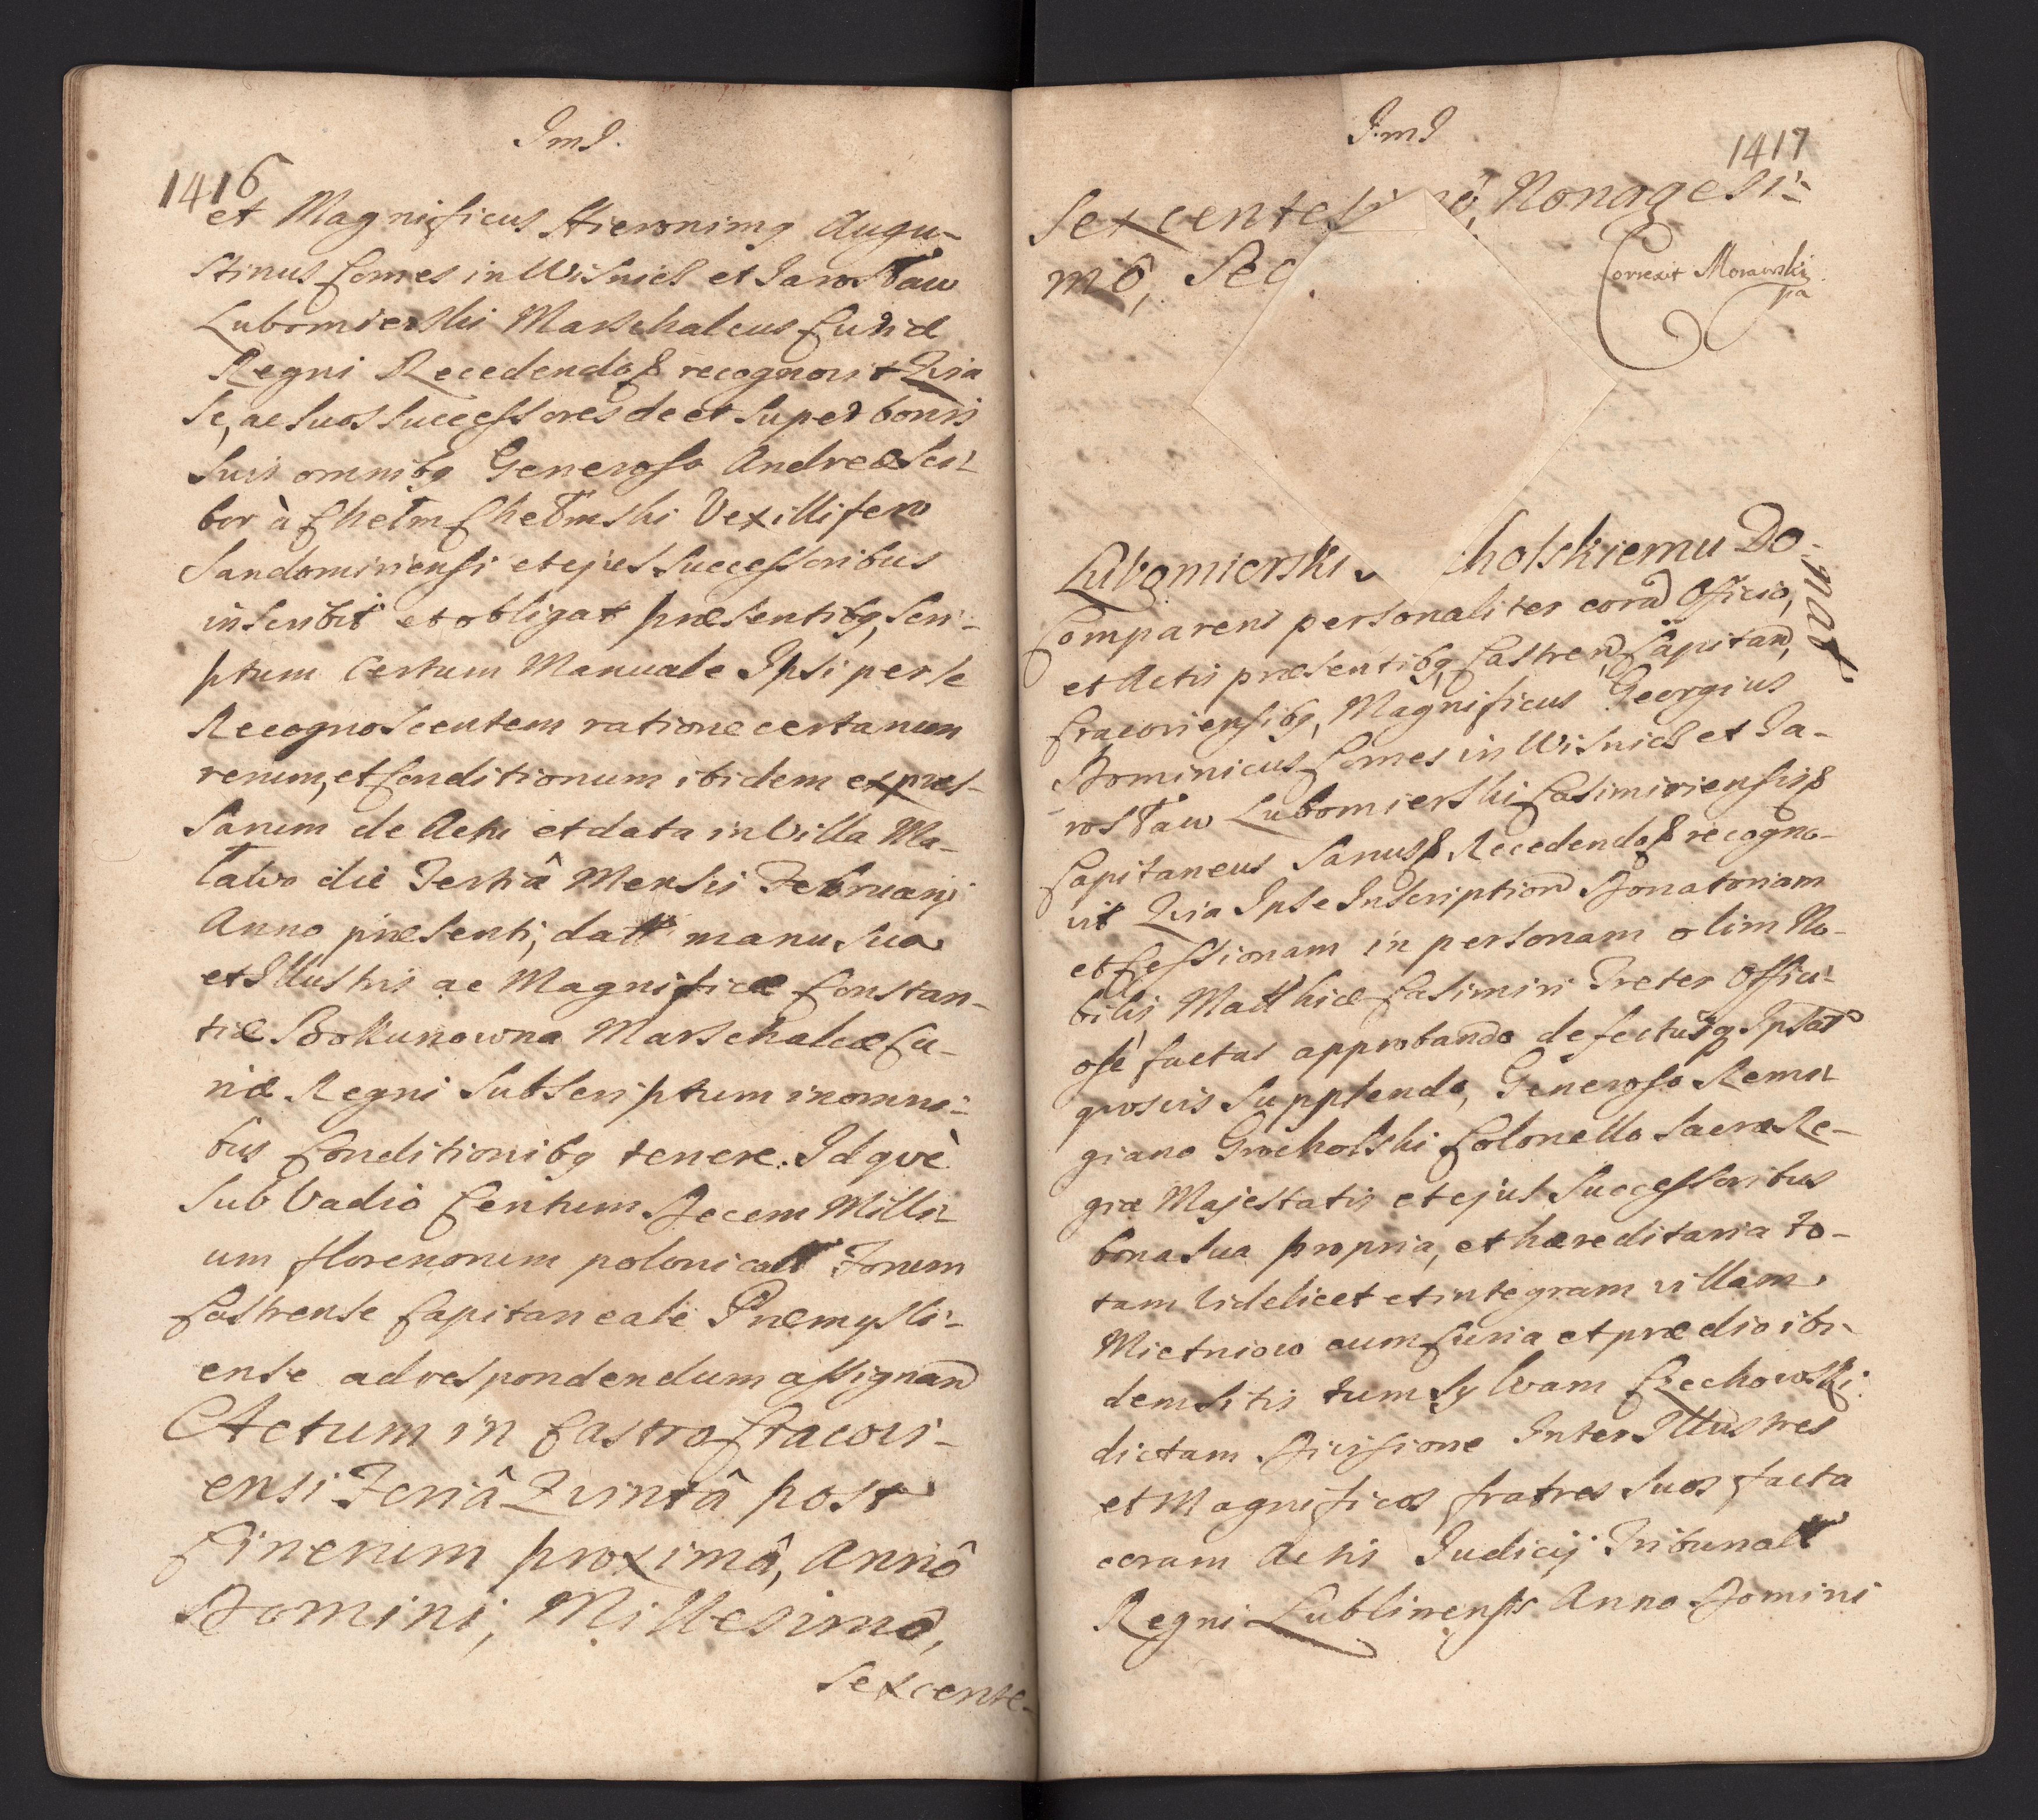 ImI.
1416
et Magnificus Hieronimq Augu-
stinus Comes in Wisnicz et Jarosław
Lubomierski Marschalcus Curiæ
Regni Recedendo& recognovit Qvia
Se, ac Suos Successores de et Super bonis
Suis omnibq Generoso Andreæ Sci-
bor à Chełm Chełmski Vexillifero
Sandomiriensi et ejus Successoribus
inscribit et obligat præsentibq, Scri-
ptum Certum Manuale Ipsi per se
Recognoscentem ratione certarum
rerum, et Conditionum ibidem expres-
Sarum de Actu et data in Villa Ma-
ławo die Tertiâ Mensis Februarij
Anno præsenti, datt manu Sua
et Illustris ac Magnificæ Constan-
tiæ Bokunowna Marschalcæ Cu-
riæ Regni Subscriptum in omni-
bus Conditionibq tenere. Idqvè
Sub Vadio Centum Decem Milli-
um florenorum polonicalt Forum
Castrense Capitaneale Præmysli-
ense ad respondendum assignand
Actum in Castro Cracovi-
ensi Feriâ Qvintâ post
Cinerum proximâ, Annô
Domini, Millesimô,
Sexcente-
I.mI
1417
Sexcentesi mô, Nonagesi-
mô, Sec
Correxit Morawski
mpa
Lubomierski holskiemu Do-
nat.
Comparens personaliter corã Officio,
et Actis præsentibq, Castren, Capitan,
Cracoviensibq, Magnificus Georgius
Dominicus Comes in Wisnicz et Ja-
rosław Lubomierski Casimiriensis&
Capitaneus Sanus& Recedendo& recogno-
vit Qvia Ipse Inscription Donatoriam
et Cessionam in personam olim No-
bilis Matthiæ Casimiri Treter Offici-
osè factas approbando defectusq Ipsar
qvosvis Supplendo, Generoso Remi-
giano Grocholski Colonello Sacræ Re-
giæ Majestatis et ejus Successoribus
bona Sua propria, et hæreditaria to-
tam Videlicet et integram villam
Mietniow cum Curia et prædio ibi-
dem Sitis tum Sylvam Czechowski
dictam Divisione Inter Illustres
et Magnificos fratres Suos facta
coram Actis Judicij Tribunalt
Regni Lublinensis Anno Domini